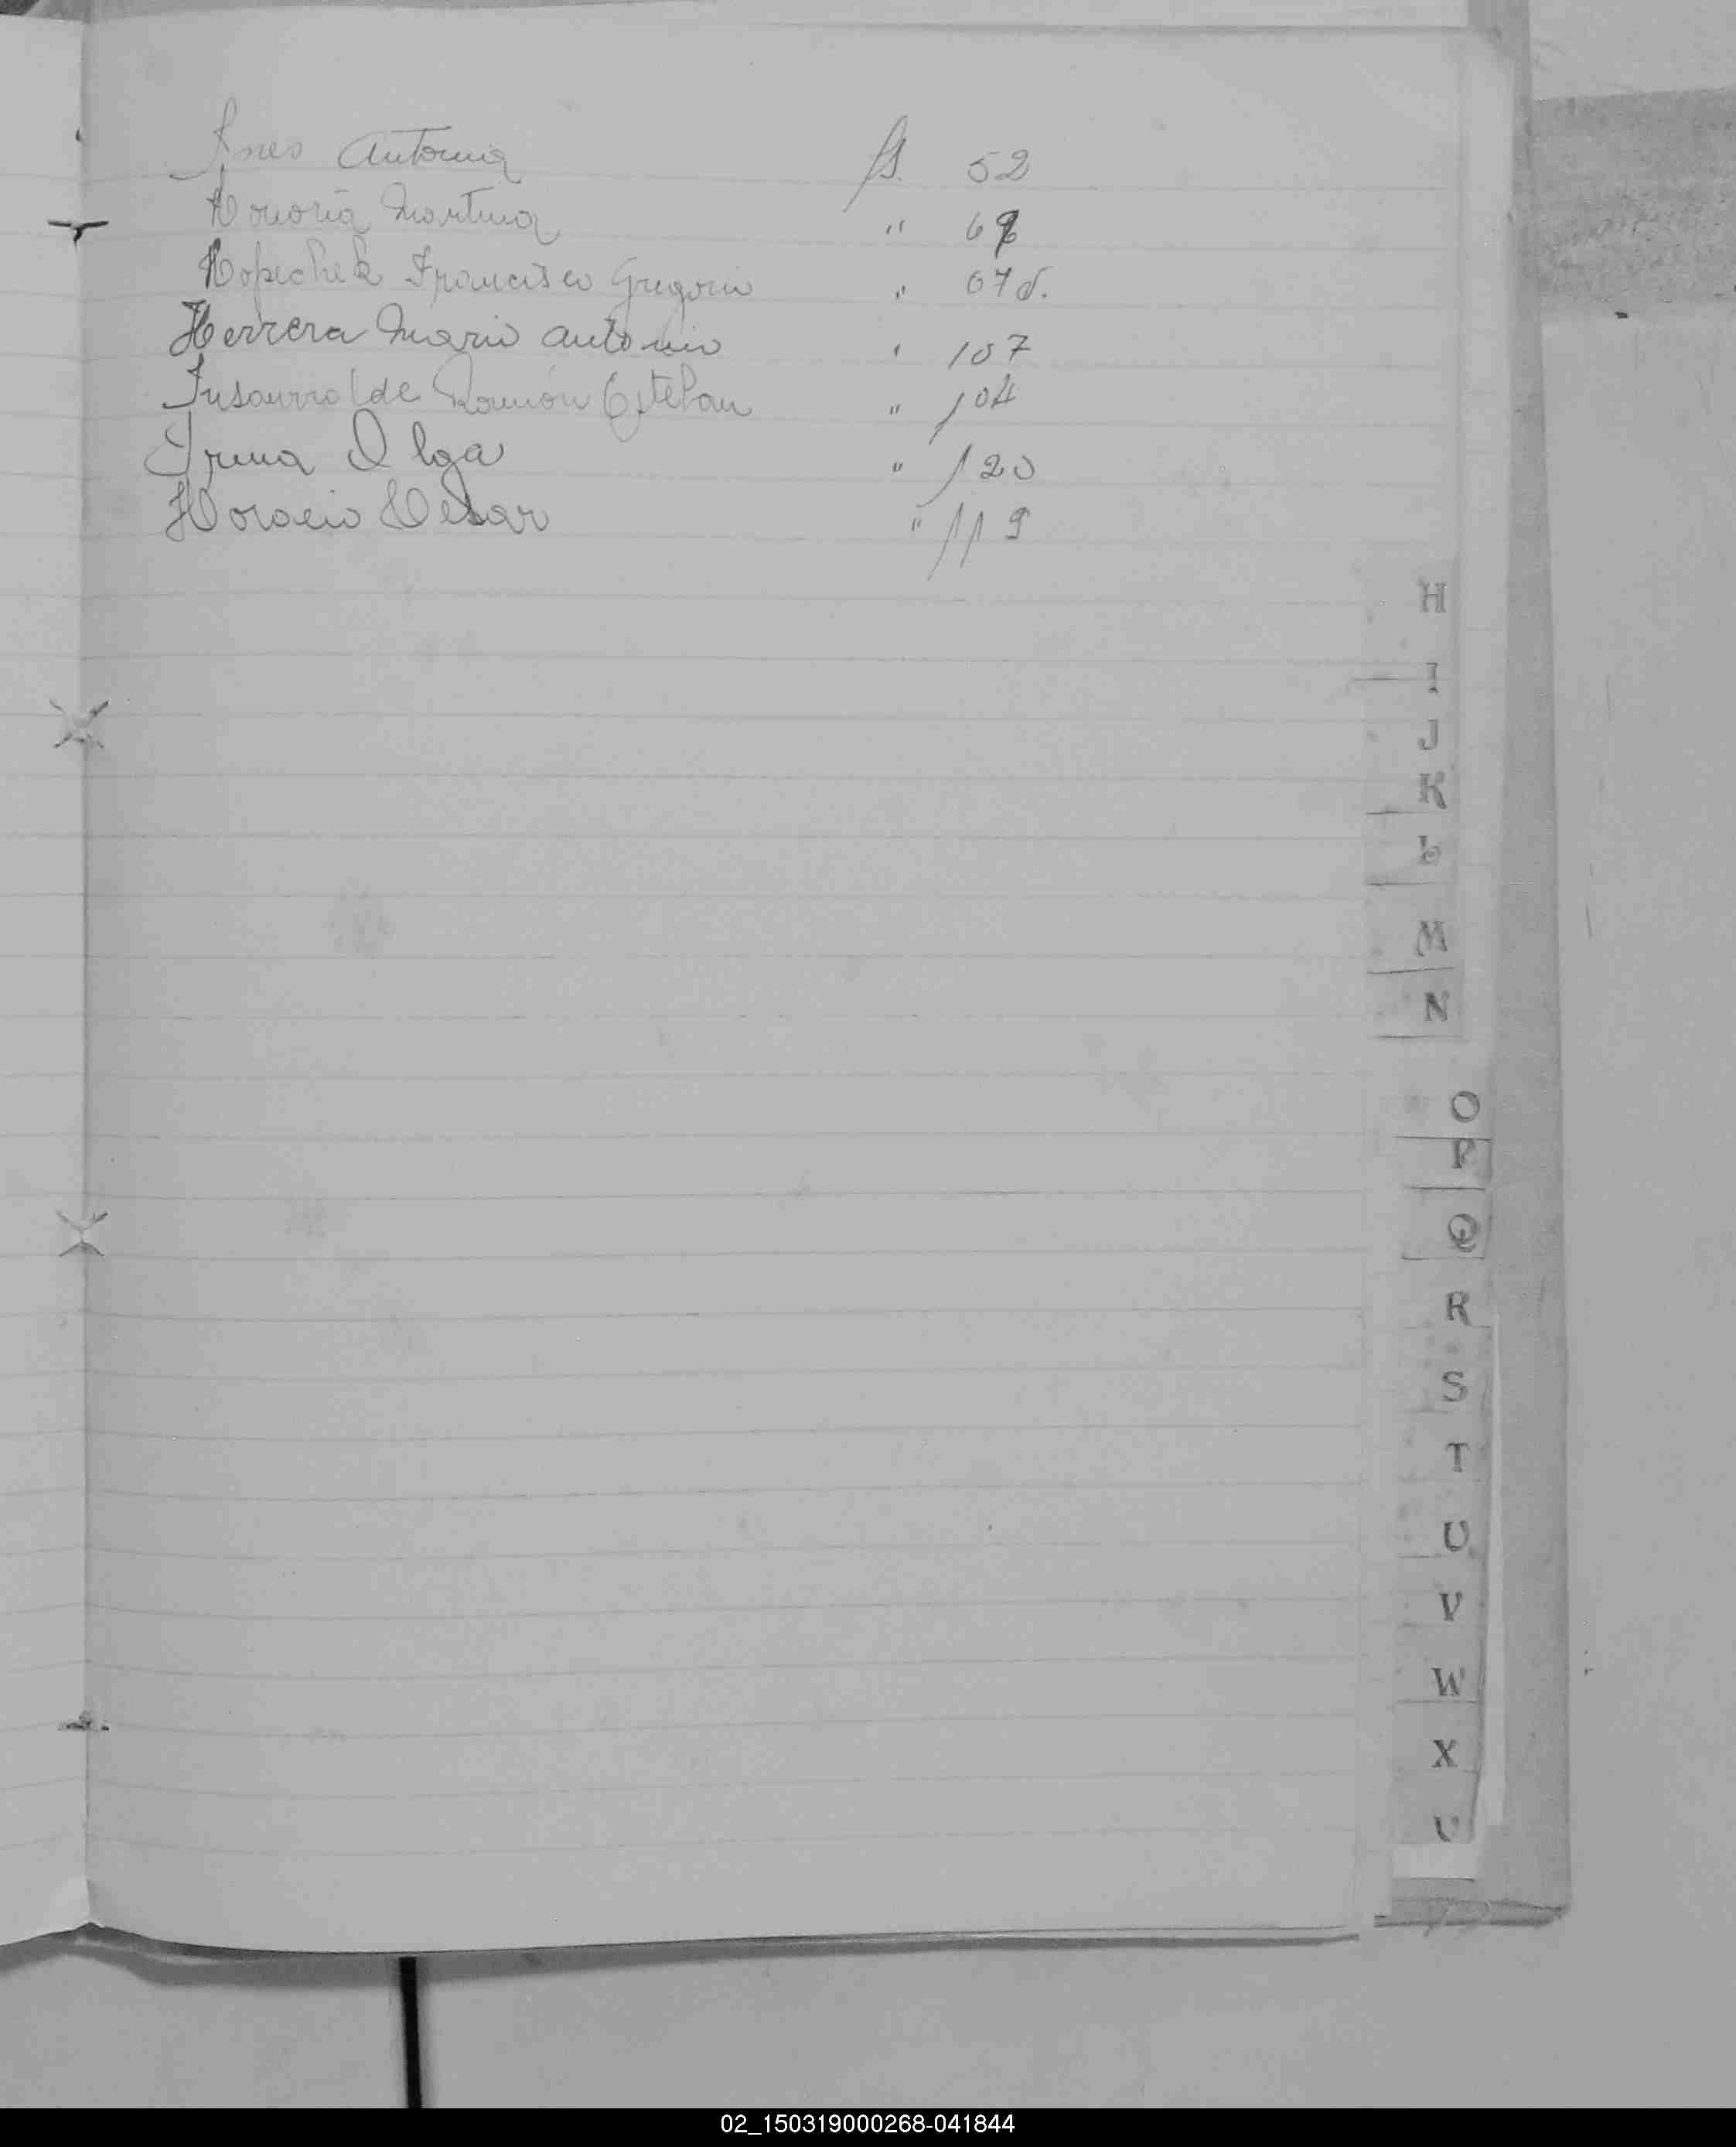 Ines Antonia fs. 52
Honoria Martina " 6
Hopichek Francisco Gregorio " 67 d.
Herrera Mario Antonio " 107
Insaurralde Ramón Esteban " 104
Irma Olga " 120
Horacio Cesar " 119
H
I
J
K
L
M
N
O
P
Q
R
S
T
U
V
W
X
02_150319000268-041844